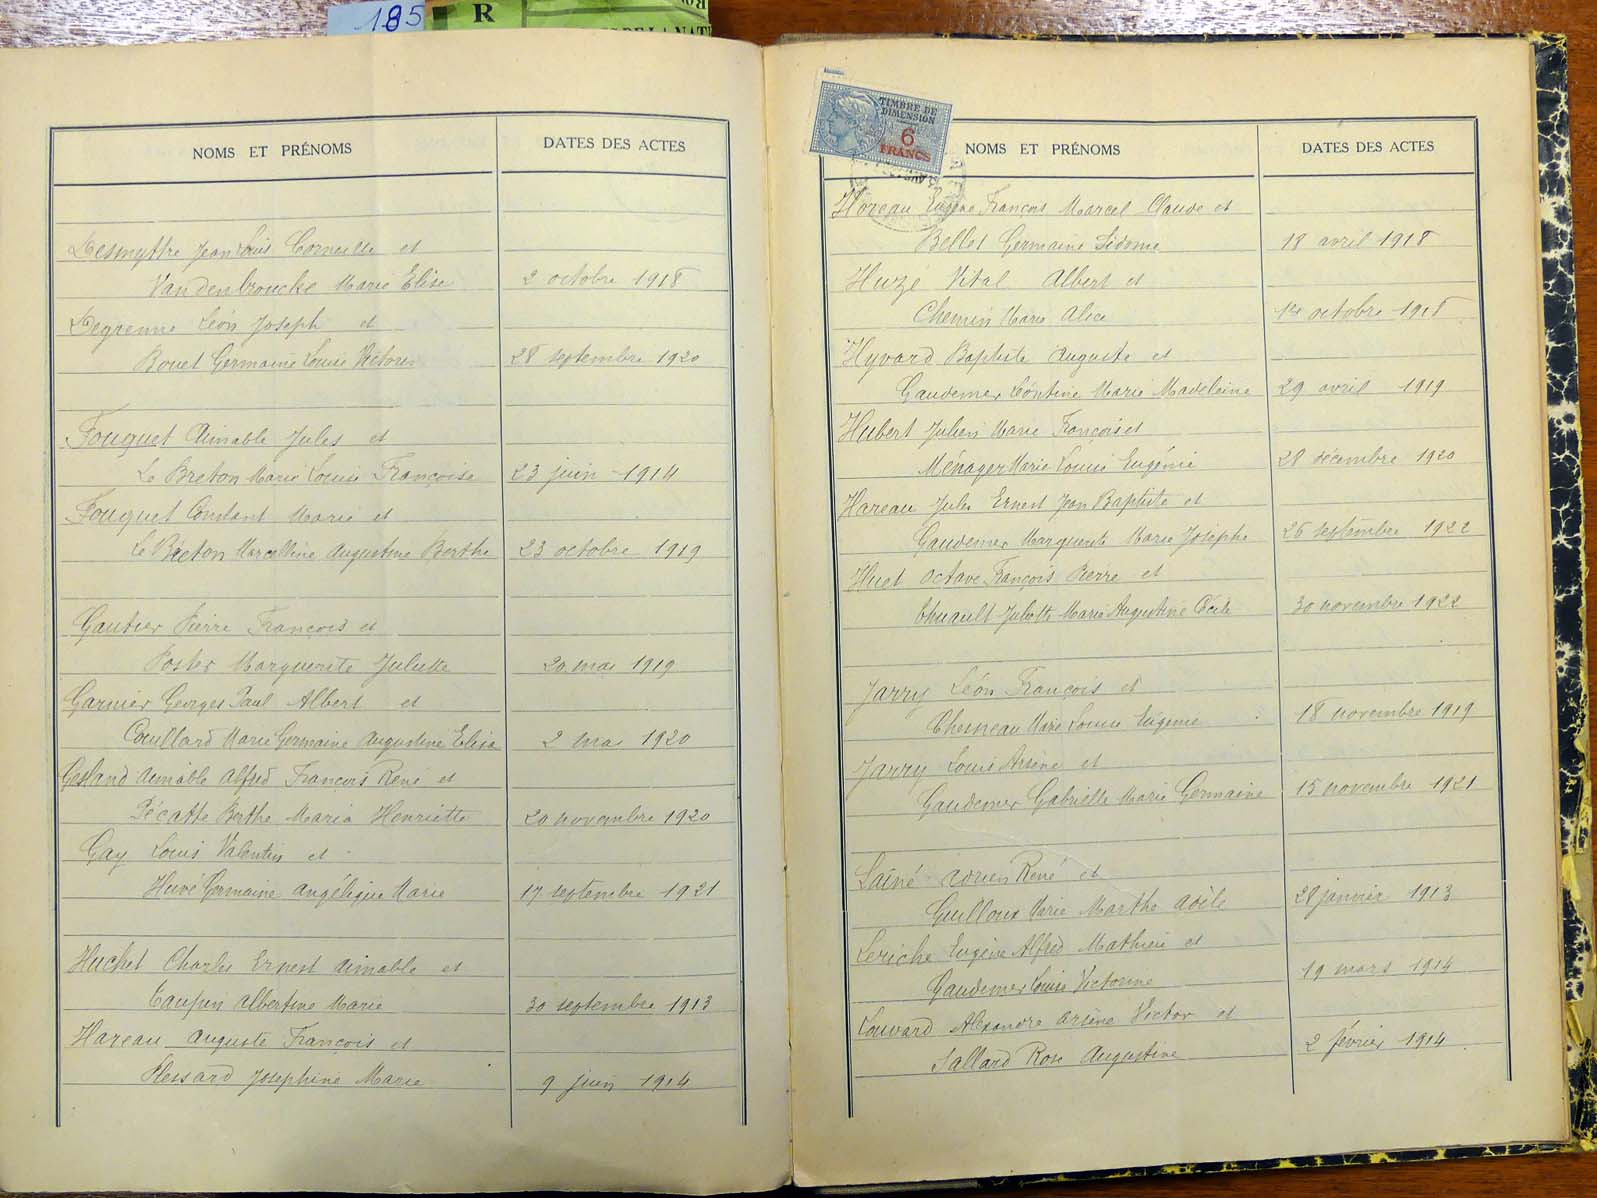 185
R
NOMS ET PRÉNOMS
DATES DES ACTES
Desmyttre Jean Louis Corneille et
Vandenbroucke Marie Elise 2 octobre 1918
Degrenne Léon Joseph et
Bouet Germaine Louise Victorine 28 septembre 1920
Fouquet Aimable Jules et
Le Breton Marie Louise Françoise 23 juin 1914
Fouquet Constant Marie et
Le Breton Marcelline Augustine Berthe 23 octobre 1919
Gautier Pierre François et
Postes Marguerite Juliette 20 mai 1919
Garnier Georges Paul Albert et
Couillard Marie Germaine Augustine Elise 2 mai 1920
Gesland Aimable Alfred François René et
Pécatte Berthe Maria Henriette 20 novembre 1920
Gay Louis Valentin et
Huvé Germaine Angélique Marie 17 septembre 1921
Huchet Charles Ernest Aimable et
Taupin Albertine Marie 30 septembre 1913
Hareau Auguste François et
Plessard Joséphine Marie 9 juin 1914
TIMBRE DE
DIMENSION
6
FRANCS
NOMS ET PRÉNOMS
DATES DES ACTES
Horeau Eugène François Marcel Claude et
Bellet Germaine Sidonie 18 avril 1918
Huzé Vital Albert et
Chemin Marie Alice 14 octobre 1918
Hyvard Baptiste Auguste et
Gaudemer Léontine Marie Madeleine 29 avril 1919
Hubert Julien Marie François et
Ménager Marie Louise Eugénie 28 décembre 1920
Hareau Jules Ernest Jean Baptiste et
Gaudemer Marguerite Marie Josèphe 26 septembre 1922
Huet Octave François Pierre et
Juliette Marie Augustine Cécile 30 novembre 1922
Jarry Léon François et
Chesneau Marie Louise Eugénie 18 novembre 1919
Jarry Louis Arsène et
Gaudemer Gabrielle Marie Germaine 15 novembre 1921
Lainé Adrien René et
Guilloux Marie Marthe Adèle 28 janvier 1913
Leriche Eugène Alfred Mathieu et
Gaudemer Louise Victorine 19 mars 1914
Louvard Alexandre Arsène Victor et
Sallard Rose Augustine 2 février 1914